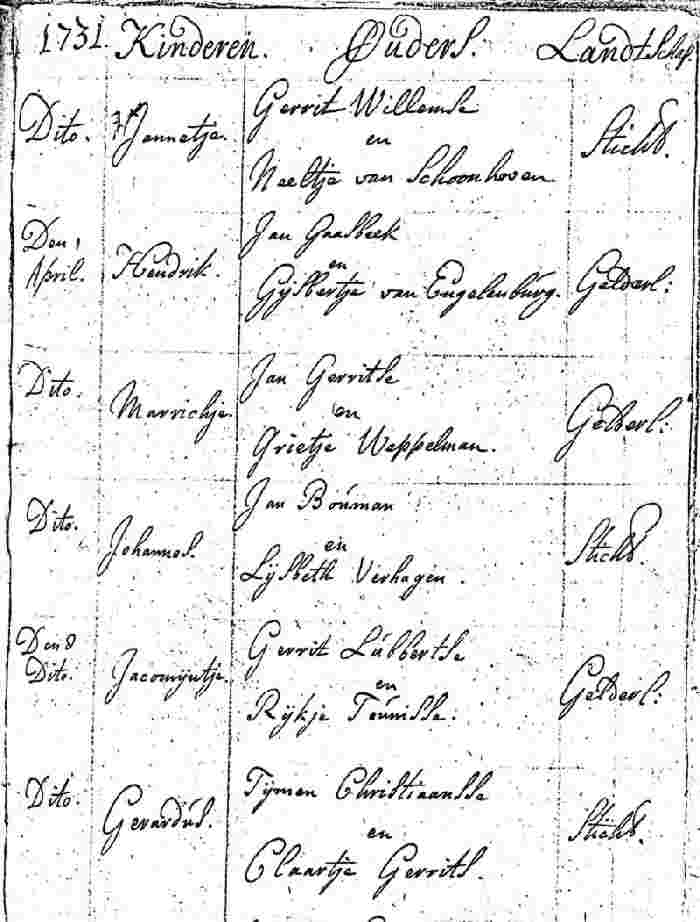 1731. Kinderen. Ouders. Landtschap
Gerrit Willemse
Dito. Jannetje. en Sticht.
Neeltje van Schoonhoven
Jan Gaasbeek
Den 1 April. Hendrik. en Gelderl:
Gijsbertje van Engelenburg.
Jan Gerritse
Dito. Marrichje. en Gelderl:
Grietje Weppelman.
Jan Bouman
Dito. Johannes. en Sticht.
Lijsbeth Verhagen.
Gerrit Lubbertse
Den 8 Dito. Jacomijntje. en Gelderl:
Rijkje Teunisse.
Tijmen Christiaansse
Dito. Gerardus. en Sticht.
Claartje Gerrits.